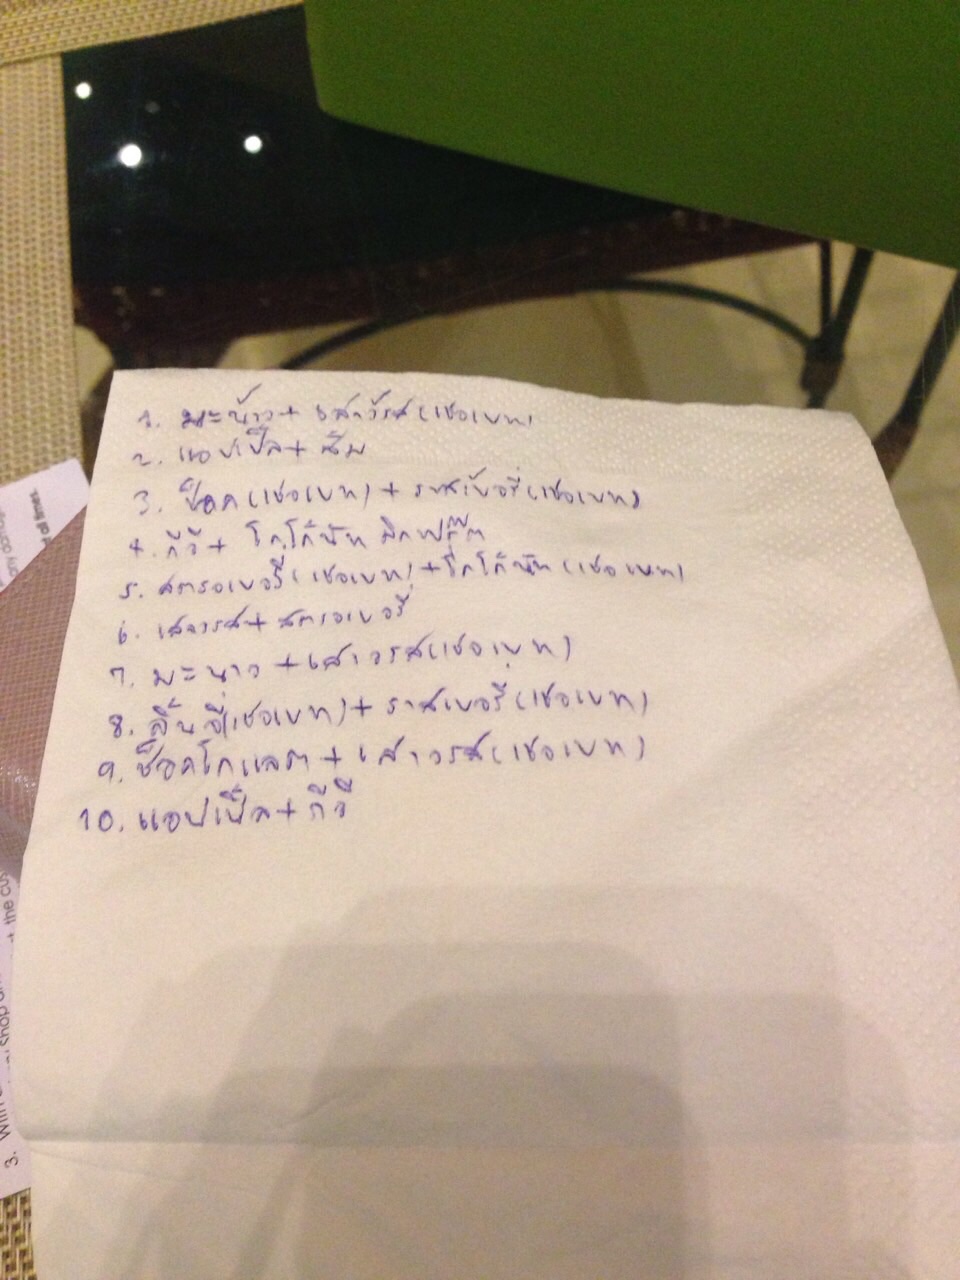 1. มะน้าว + เสาวรส (เชอเบท)
2. แอปเปิ้ล + ส้ม
3. ช็อค (เชอเบท) + ราสเบอรี่ (เชอเบท)
4. กีวี + โคโค้นัท มิกฟรุ๊ต
5. สตรอเบอรี่ (เชอเบท) + โคโค้นัท (เชอเบท)
6. เสาวรส + สตรอเบอรี่
7. มะนาว + เสาวรส (เชอเบท)
8. ลิ้นจี่ (เชอเบท) + ราสเบอรี่ (เชอเบท)
9. ช็อคโกแลต + เสาวรส (เชอเบท)
10. แอปเปิ้ล + กีวี
all times.
the cus
3. With Shop